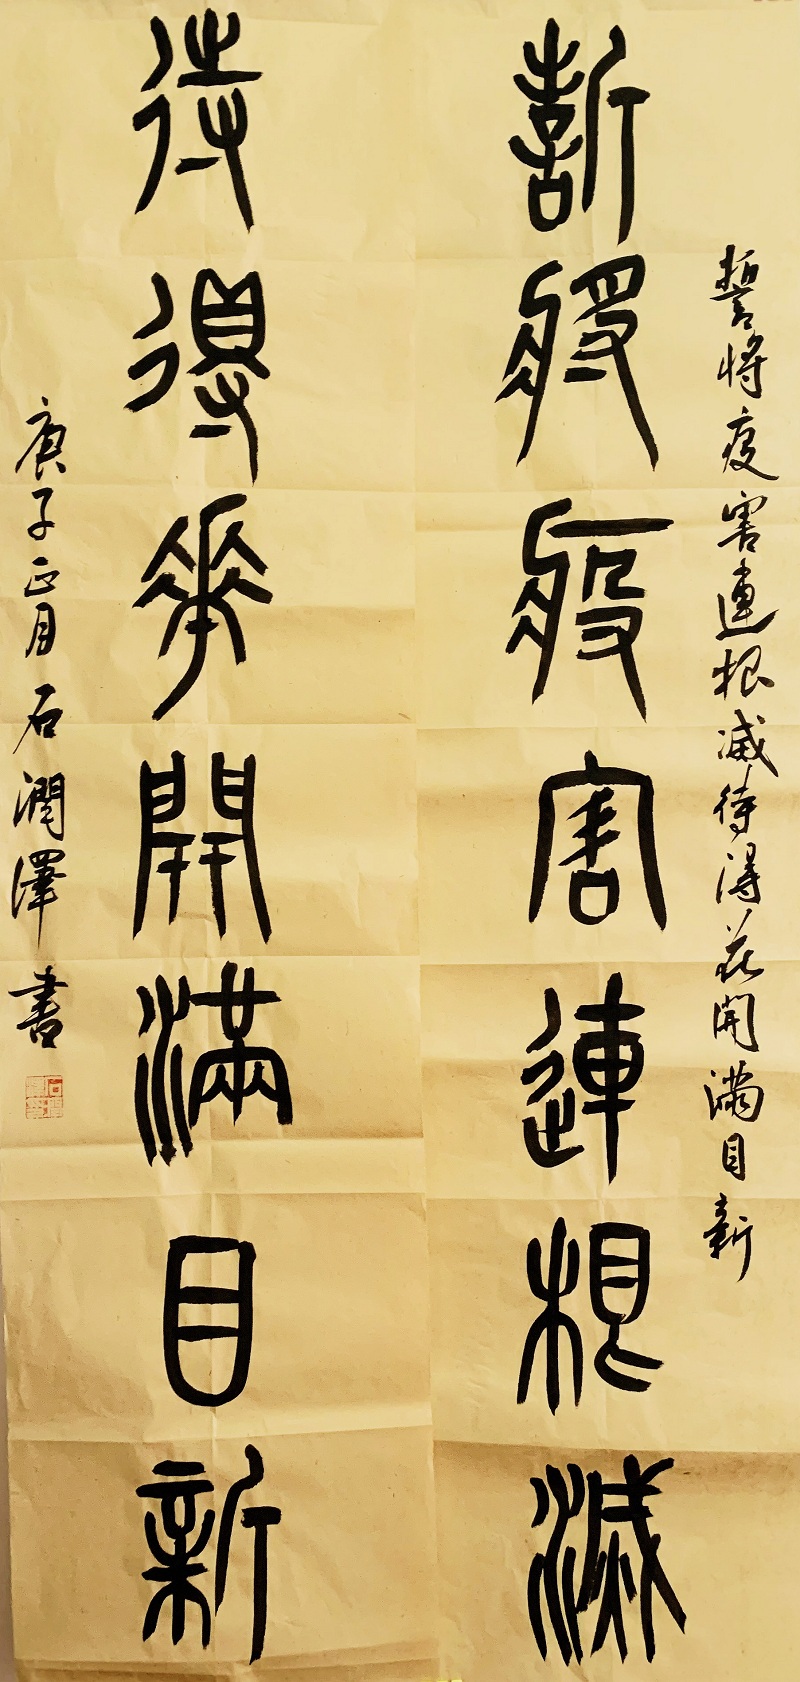 誓將疫害連根滅
待得花開滿目新
誓將疫害連根滅待得花開滿目新
庚子正月石潤澤書